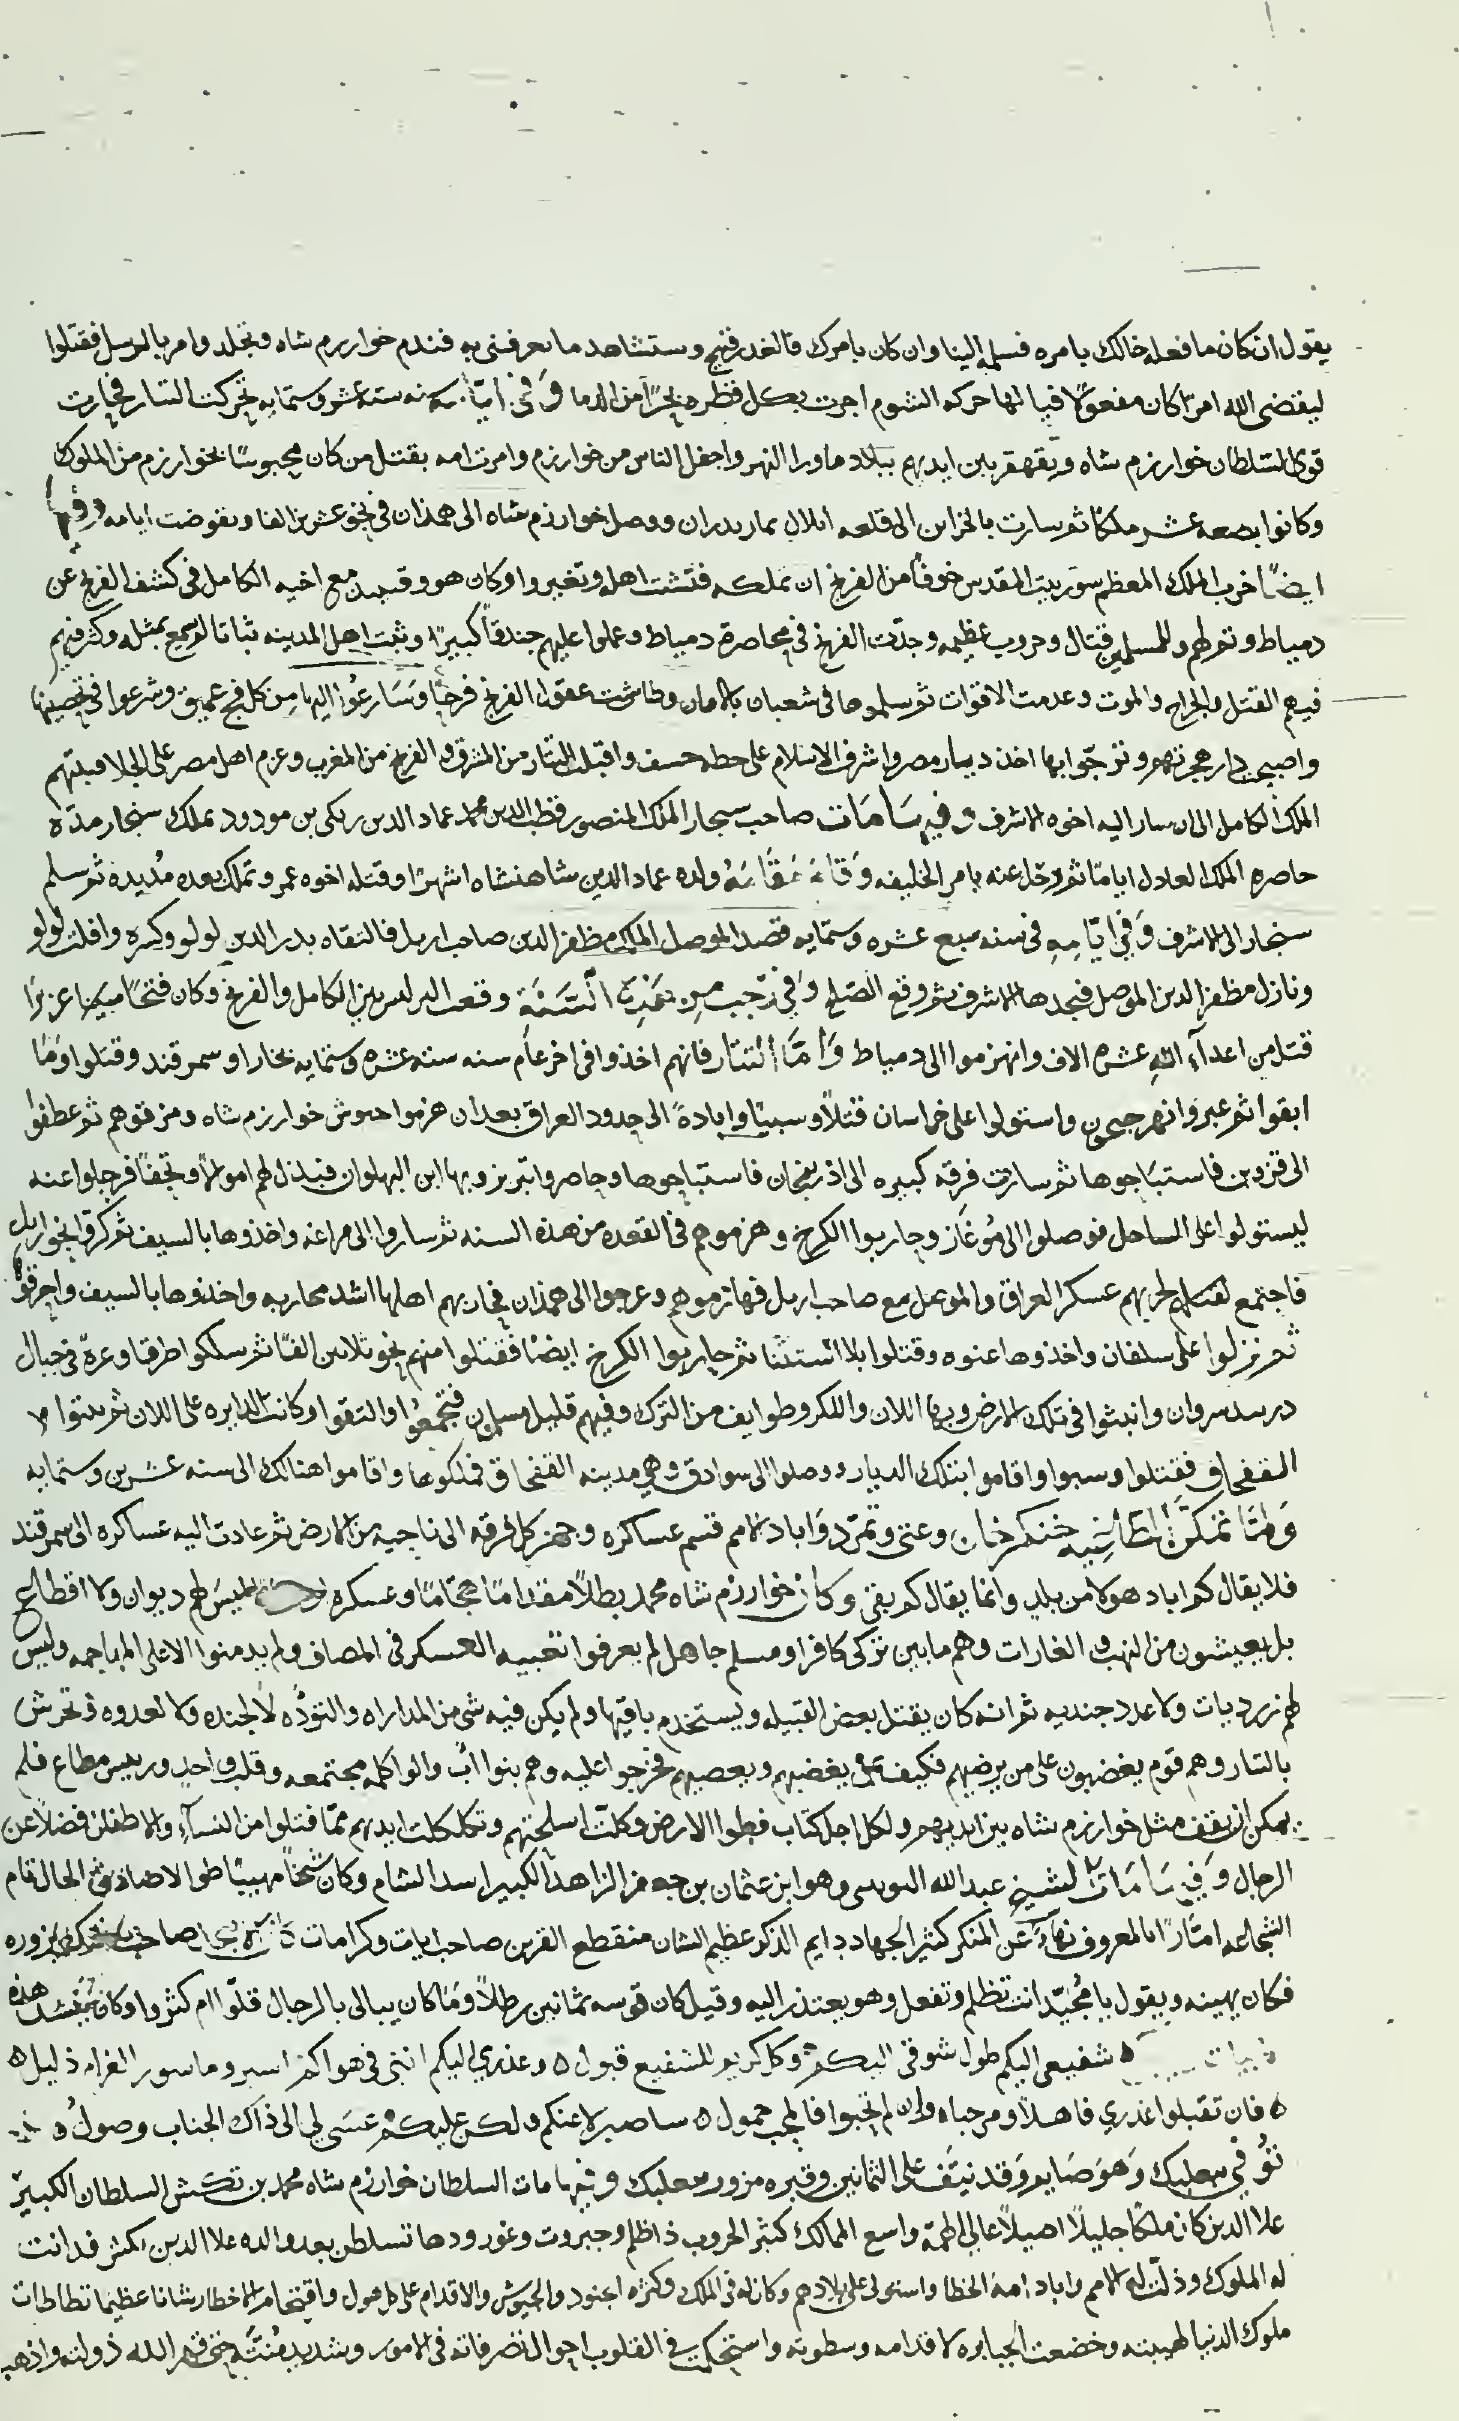 يقول ان كان ما فعله خالك بامره فسلمه الينا وان كان بامرك فالغدر قبيح وستشاهد ما تعرفنى به فندم خوارزم شاه وتجلد وامر بالرسل فقتلوا
ليقضى الله امرًا كان مفعولًا فيا لها حركه الشوم اجرت بكل قطره بحرًا من الدما وفى ايامه سنه سته عشر وستمايه تحركت التتار فخارت
قوى السلطان خوارزم شاه وتقهقر بين ايديهم ببلاد ماورا النهر واجفل الناس من خوارزم وامرت امه بقتل من كان محبوسًا بخوارزم من الملوك
وكانوا بضعه عشر ملكًا ثم سارت بالخزاين الى قلعه ايلال بمازندران ووصل خوارزم شاه الى همذان فى نحو عشرين الفا وتقوضت ايامه وفيها
ايضًا اخرب الملك المعظم سور بيت المقدس خوفًا من الفرنج ان تملكه فتشتت اهله وتغيروا وكان هو وقتيذ مع اخيه الكامل فى كشف الفرنج عن
دمياط وتم لهم وللمسلمين قتال وحروب عظيمه وجدّت الفرنج فى محاصرة دمياط وعملوا عليهم خندقًا كبيرًا وثبت اهل المدينه ثباتا لم يسمع بمثله وكثر فيهم
فيهم القتل والجراح والموت وعدمت الاقوات ثم سلموها فى شعبان بالامان وطاشت عقول الفرنج فرحًا وتسارعوا اليها من كل فج عميق وشرعوا فى تحصينها
واصبحت دار هجرتهم وترجّوا بها اخذ ديار مصر واشرف الاسلام على خطه خسف واقبلت التتار من المشرق والفرنج من المغرب وعزم اهل مصر على الجلا فثبتهم
الملك الكامل الى ان سار اليه اخوه الاشرف وفيها مات صاحب سنجار الملك المنصور قطب الدين محمد عماد الدين زنكى بن مودود تملك سنجار مدّه
حاصره الملك العادل ايامًا ثم رحل عنه بامر الخليفه وقام مقامه ولده عماد الدين شاهنشاه اشهرًا وقتله اخوه عمر وتملك بعده مُديده ثم سلم
سنجار الى الاشرف وفى ايامه فى سنه سبع عشره وستمايه قصد الموصل الملك مظفر الدين صاحب اربل فالتقاه بدر الدين لولو وكسره وافلت لولو
ونازل مظفر الدين الموصل فنجدها الاشرف ثم وقع الصلح وفى رجب من هذه السنة وقعت البرلس بين الكامل والفرنج وكان فتحًا مبينا عزيزا
قتل من اعدآء الله عشره الاف وانهزموا الى دمياط وأمّا التتار فانهم اخذوا فى اخر عام سنه سته عشره وستمايه بخارا وسمرقند وقتلوا وما
ابقوا ثم عبروا نهر جيحون واستولوا على خراسان قتلًا وسبيًا وابادةً الى حدود العراق بعد ان هزموا جيوش خوارزم شاه ومزقوهم ثم عطفوا
الى قزوين فاستباحوها ثم سارت فرقه كبيره الى اذربيجان فاستباحوها وحاصروا تبريز وبها ابن البهلوان فبذل لهم اموالًا وتحفًا فرحلوا عنه
ليستولوا على الساحل فوصلوا الى مُوغان وحاربوا الكرج وهزموهم فى القعده من هذه السنه ثم ساروا الى مراغه واخذوها بالسيف ثم كروا نحو اربل
فاجتمع لقتالهم لحربهم عسكر العراق والموصل مع صاحب اربل فهابوهم وعرجوا الى همذان فحاربهم اهلها اشد محاربه واخذوها بالسيف واحرقوها
ثم نزلوا على بيلقان واخذوها عنوه وقتلوا بلا استثنا ثم حاربوا الكرج ايضًا فقتلوا منهم نحو ثلاثين الفًا ثم سلكوا طرقا وعره فى جبال
دربند شروان وانبثوا فى تلك الارض وبها اللان واللكز وطوايف من الترك وفيهم قليل مسلمون فتجمعوا والتقوا وكانت الدايره على اللان ثم بيتوا
القفجاق فقتلوا وسبوا واقاموا بتلك الديار ووصلوا الى سوادق وهى مدينه القفجاق فملكوها واقاموا هنالك الى سنه عشرين وستمايه
ولمّا تمكن الطاغيه جنكزخان وعتى وتمرّد واباد الامم قسم عساكره وجهز كل فرقه الى ناحيه من الارض ثم عادت اليه عساكره الى سمرقند
فلا يقال كم اباد هولا من بلد وانما يقال كم بقى وكان خوارزم شاه محمد بطلًا مقدامًا هجّامًا وعسكره ليس لهم ديوان ولا اقطاع
بل يعيشون من النهب والغارات وهم ما بين تركى كافر او مسلم جاهل لم يعرفوا تعبيه العسكر فى المصاف ولم يدمنوا الا على المهاجمه وليس
لهم زرديات ولا عدد جنديه ثم انه كان يقتل بعض القبيله ويستخدم باقيها ولم يكن فيه شى من المداراه والتوده لا لجنده ولا لعدوه وتحرش
بالتتار وهم قوم يغضبون على من يرضيهم فكيف بمن يغضبهم ويعصيهم فخرجوا عليه وهم بنوا اب واولوا كلمه مجتمعه وقلب واحد ورييس مطاع فلم
يمكن ان يقف مثل خوارزم شاه بين ايديهم ولكل اجل كتاب فطووا الارض وكلّت اسلحتهم وتكلكلت ايديهم ممّا قتلوا من النسآء والاطفال فضلًا عن
الرجال وفيها مات الشيخ عبد الله اليونينى وهو ابن عثمان بن جعفر الزاهد الكبير اسد الشام وكان شيخًا مهيبًا طوالا حاد الحال تام
الشجاعه امّارًا بالمعروف نهّاءً عن المنكر كثير الجهاد دايم الذكر عظيم الشان منقطع القرين صاحب ايات وكرامات صاحب بعلبك يزوره
فكان يهينه ويقول يا مُجيّد انت تظلم وتفعل وهو يعتذر اليه وقيل كان قوسه ثمانين رطلًا وما كان يبالى بالرجال قلّوا ام كثروا وكان ينشد هذه
شفيعى اليكم طول شوقى اليكم وكل كريم للشفيع قبول ٥ وعذري اليكم اننى فى هواكم اسير وماسور الغرام ذليل ٥
٥ فان تقبلوا عذري فاهلًا ومرحبا وان لم تجيبوا فالمحب حمول ٥ ساصبر لا عنكم ولكن عليكم عسى لي الى ذاك الجناب وصول
توفي ببعلبك وهو صايم وقد نيّف على الثمانين وقبره مزور ببعلبك وفيها مات السلطان خوارزم شاه محمد بن تكش السلطان الكبير
علا الدين كان ملكًا جليلًا اصيلًا عالي الهمّة واسع الممالك كثير الحروب ذا ظلم وجبروت وغور ودها تسلطن بعد والده علا الدين تكش فدانت
له الملوك وذلت له الامم واباد امة الخطا واستولى على بلادهم وكان له فى الملك وكثره الجنود والجيوش والاقدام على كل مهول واقتحام الاخطار شانا عظيما تطاطات
ملوك الدنيا لهيبته وخضعت الجبابره لاقدامه وسطوته واستحكمت فى القلوب احوال تصرفاته فى الامور وشديد مُنّته حتى قهر الله دولته واذهب